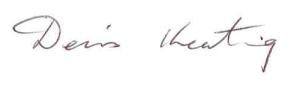 Denis Keating